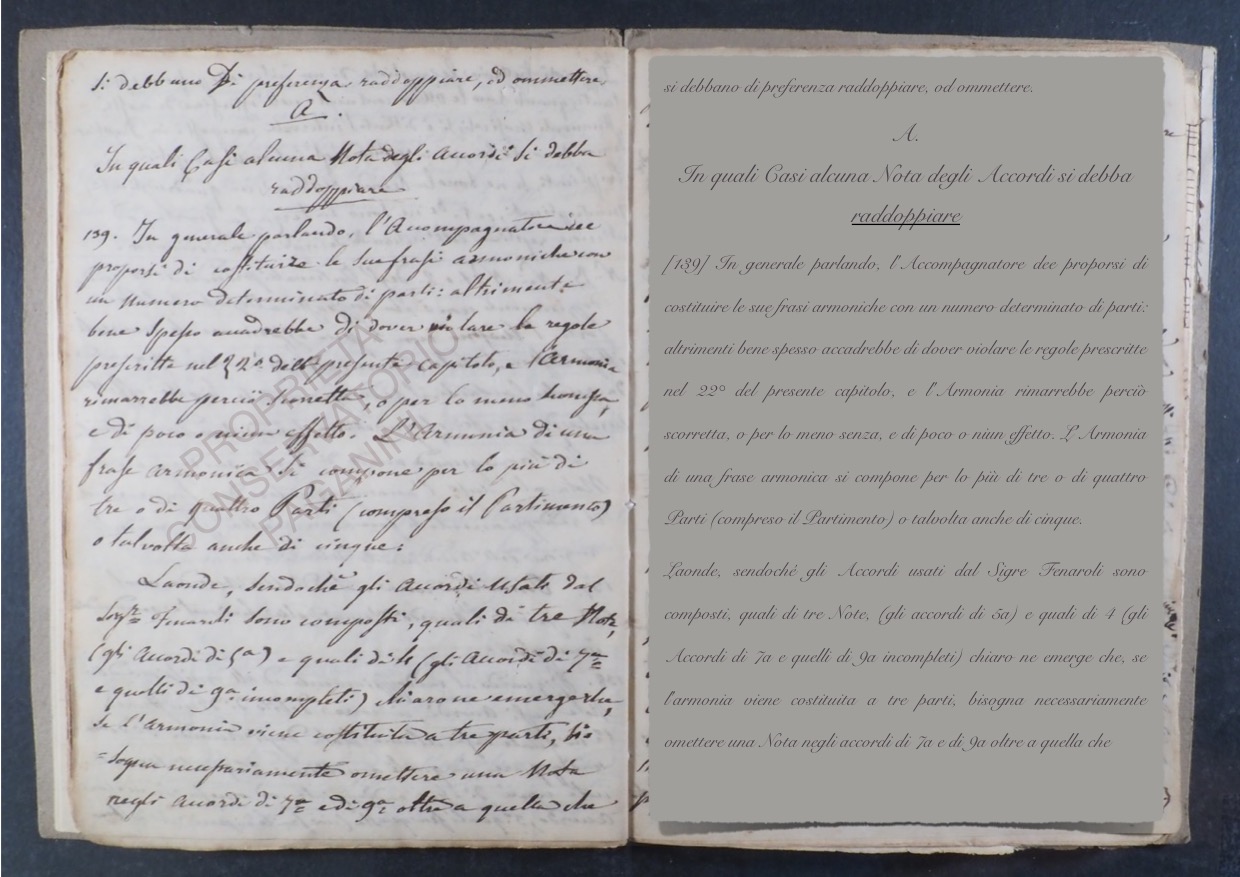 si debbano Di preferenza raddoppiare, od ommettere
A.
In quali Casi alcuna Nota degli Accordi si debba
raddoppiare
139. In generale parlando, l'Acompagnatore dee
proporsi di costituire le sue frasi armoniche con
un numero determinato di parti: altrimenti
bene spesso accadrebbe di dover violare le regole
prescritte nel § 22° del presente capitolo, e l'Armonia
rimarrebbe perciò scorretta, o per lo meno
e di poco o niun effetto. L'Armonia di una
frase armonica si compone per lo più di
tre o di quattro Parti (compreso il Partimento)
o talvolta anche di cinque:
Laonde, sendochè gli Accordi usati dal
Sigre Fenaroli sono composti, quali di tre Note,
(gli accordi di 5a) e quali di 4 (gli Accordi di 7a
e quelli di 9a incompleti) chiaro ne emerge che,
se l'armonia viene costituita a tre parti, bi=
=sogna necessariamente omettere una Nota
negli accordi di 7a e di 9a oltre a quella che
PROPRIETÀ
CONSERVATORIO
PAGANINI
si debbano di preferenza raddoppiare, od ommettere.
A.
In quali Casi alcuna Nota degli Accordi si debba
raddoppiare
[139] In generale parlando, l'Accompagnatore dee proporsi di
costituire le sue frasi armoniche con un numero determinato di parti:
altrimenti bene spesso accadrebbe di dover violare le regole prescritte
nel 22° del presente capitolo, e l'Armonia rimarrebbe perciò
scorretta, o per lo meno senza, e di poco o niun effetto. L'Armonia
di una frase armonica si compone per lo più di tre o di quattro
Parti (compreso il Partimento) o talvolta anche di cinque.
Laonde, sendoché gli Accordi usati dal Sigre Fenaroli sono
composti, quali di tre Note, (gli accordi di 5a) e quali di 4 (gli
Accordi di 7a e quelli di 9a incompleti) chiaro ne emerge che, se
l'armonia viene costituita a tre parti, bisogna necessariamente
omettere una Nota negli accordi di 7a e di 9a oltre a quella che